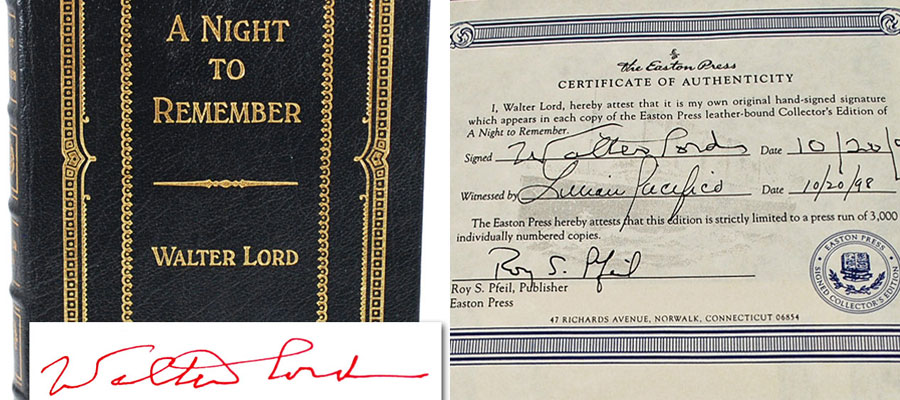 A NIGHT
TO
REMEMBER
WALTER LORD
Walter Lord
the Easton Press
CERTIFICATE OF AUTHENTICITY
I, Walter Lord, hereby attest that it is my own original hand-signed signature
which appears in each copy of the Easton Press leather-bound Collector's Edition of
A Night to Remember.
Signed Walter Lord Date 10/20/9
Witnessed by Lucian Pacifico Date 10/20/98
The Easton Press hereby attests that this edition is strictly limited to a press run of 3,000
individually numbered copies.
Roy S. Pfeil
Roy S. Pfeil, Publisher
Easton Press
EASTON PRESS
SIGNED COLLECTOR'S EDITION
47 RICHARDS AVENUE, NORWALK, CONNECTICUT 06854